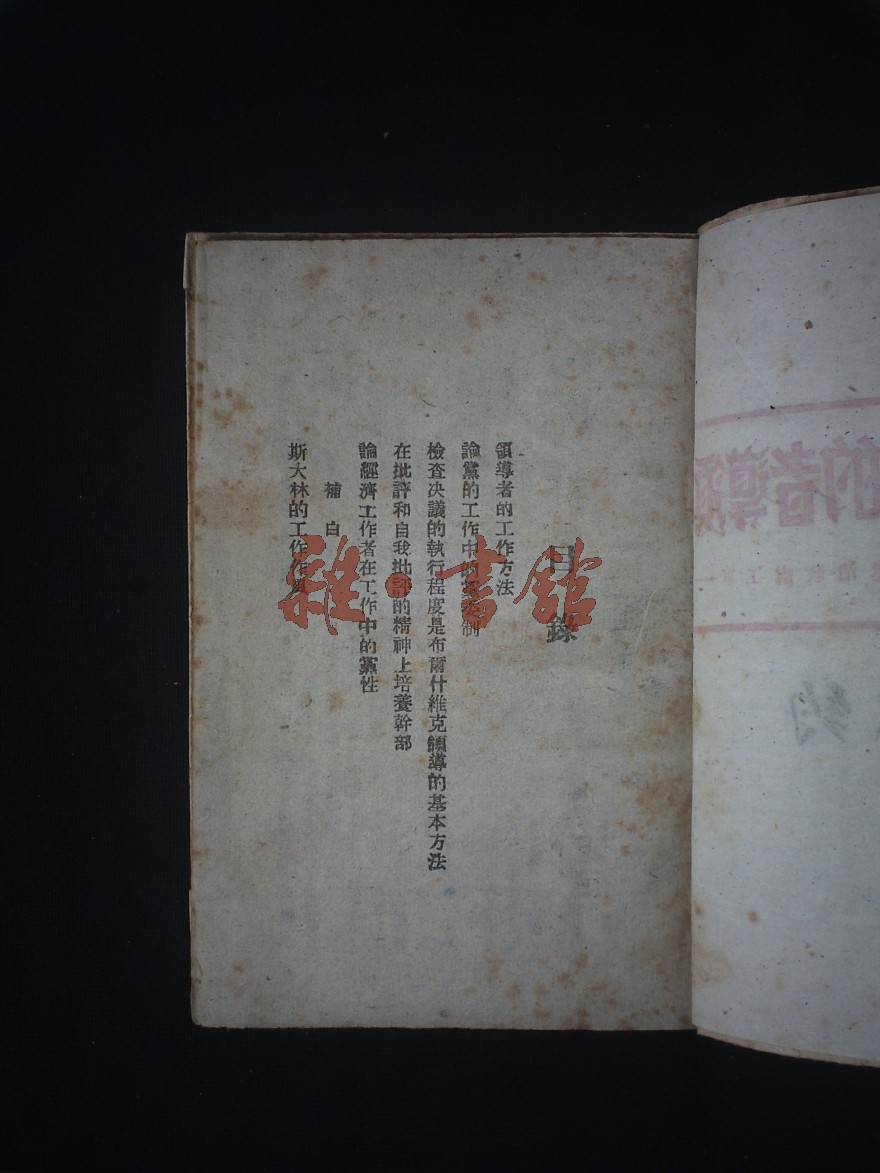 目錄
領導者的工作方法
論黨的工作中的黨委制
檢查决議的執行程度是布爾什維克領導的基本方法
在批評和自我批評的精神上培養幹部
論經濟工作者在工作中的黨性
補白
斯大林的工作作風
雜·書館